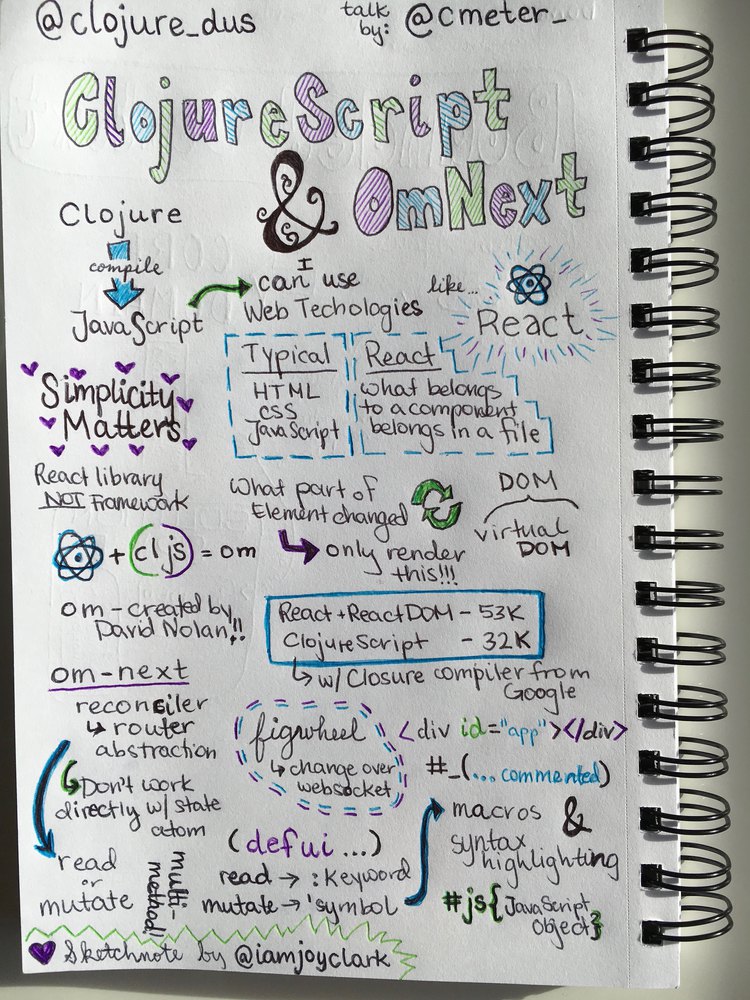 @clojure_dus
talk by: @cmeter_
ClojureScript
& OmNext
Clojure
compile
JavaScript
I
can use
Web Techologies
like...
React
Typical
HTML
CSS
JavaScript
React
what belongs
to a component
belongs in a file
Simplicity
Matters
React library
NOT Framework
What part of
Element changed
only render
this!!!
DOM
virtual
DOM
+ (cljs) = om
om - created by
David Nolan!!
React + ReactDOM - 53K
ClojureScript - 32K
w/ Closure compiler from
Google
om-next
reconciler
router
abstraction
Don't work
directly w/ state
atom
read
or
mutate
multi-
method!
figwheel
change over
websocket
<div id="app"></div>
#_(...commented)
macros &
syntax
highlighting
(defui ...)
read → :keyword
mutate → 'symbol
#js{JavaScript
Object}
Sketchnote by @iamjoyclark